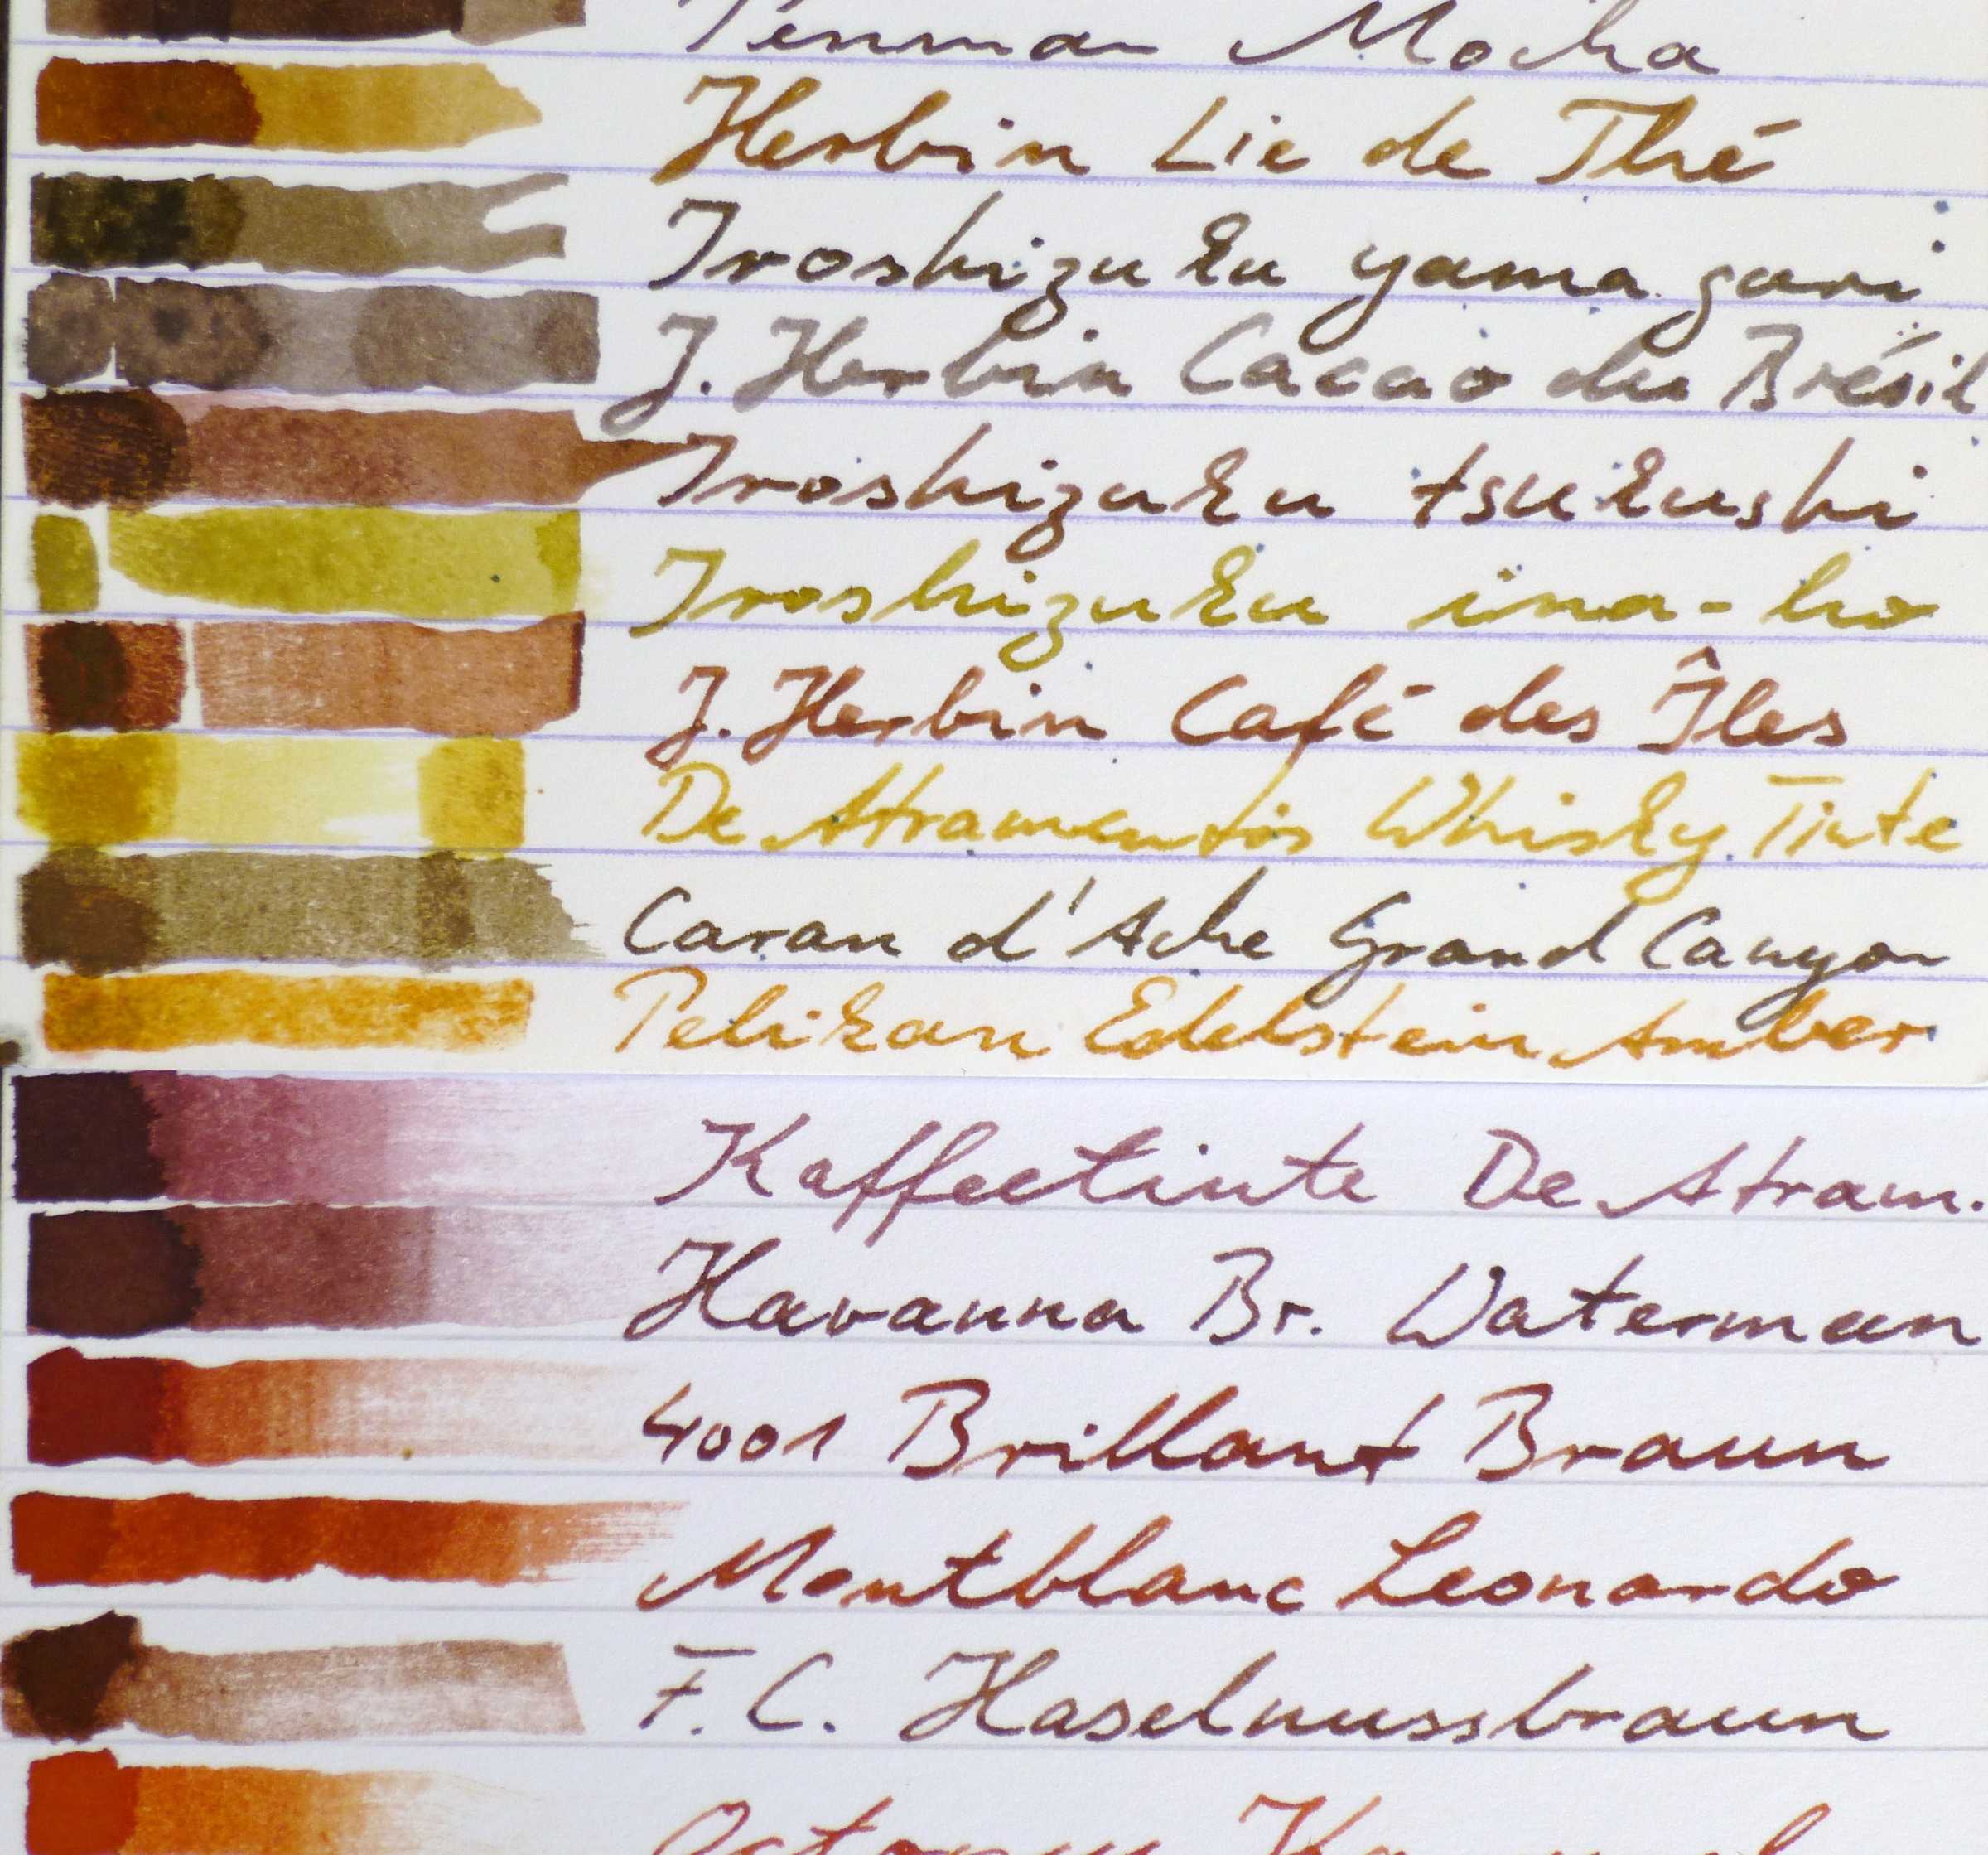 Penman Mocha
Herbin Lie de Thé
Iroshizuku yama guri
J. Herbin Cacao du Brésil
Iroshizuku tsukushi
Iroshizuku ina-ho
J. Herbin Café des Îles
De Atramentis Whisky Tinte
Caran d'Ache Grand Canyon
Pelikan Edelstein Amber
Kaffeetinte De Atram.
Havanna Br. Waterman
4001 Brillant Braun
Montblanc Leonardo
F. C. Haselnussbraun